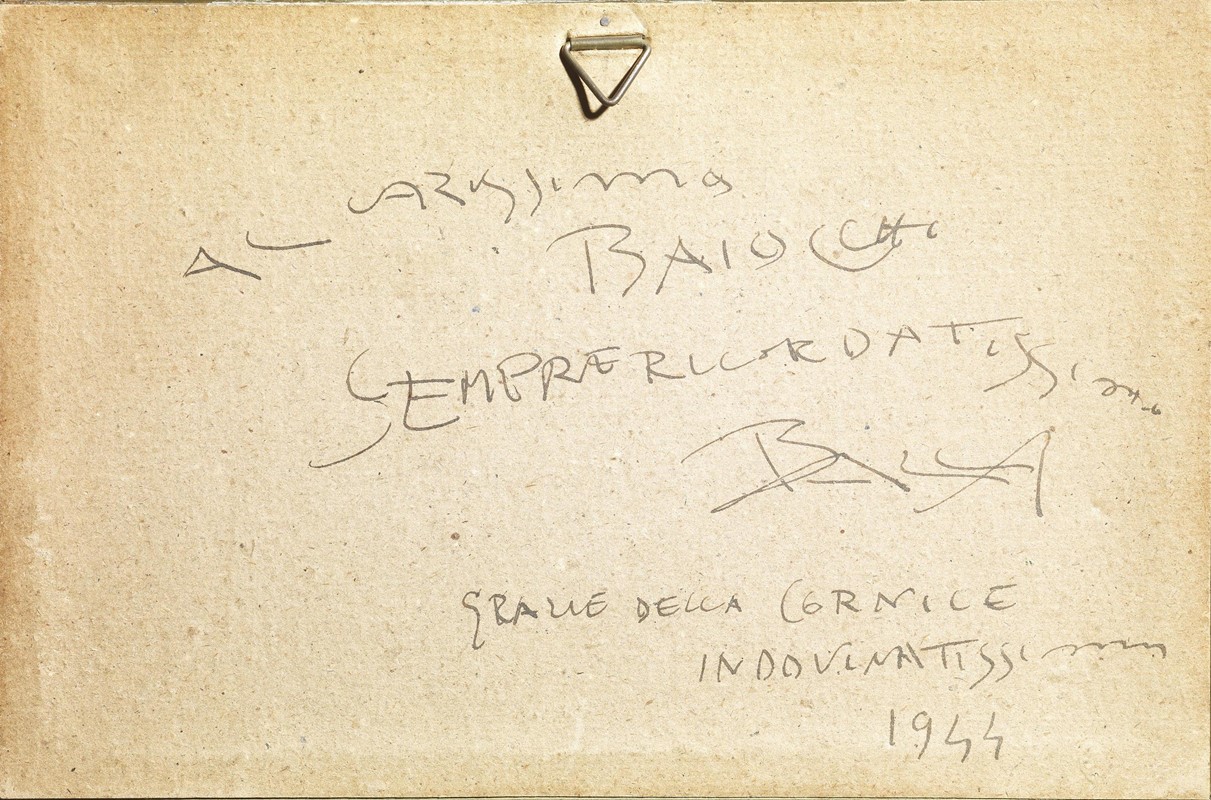 AL CARISSIMO
BAIOCCHI
SEMPRE RICORDATISSIMO
BALLA
GRAZIE DELLA CORNICE
INDOVINATISSIMA
1944